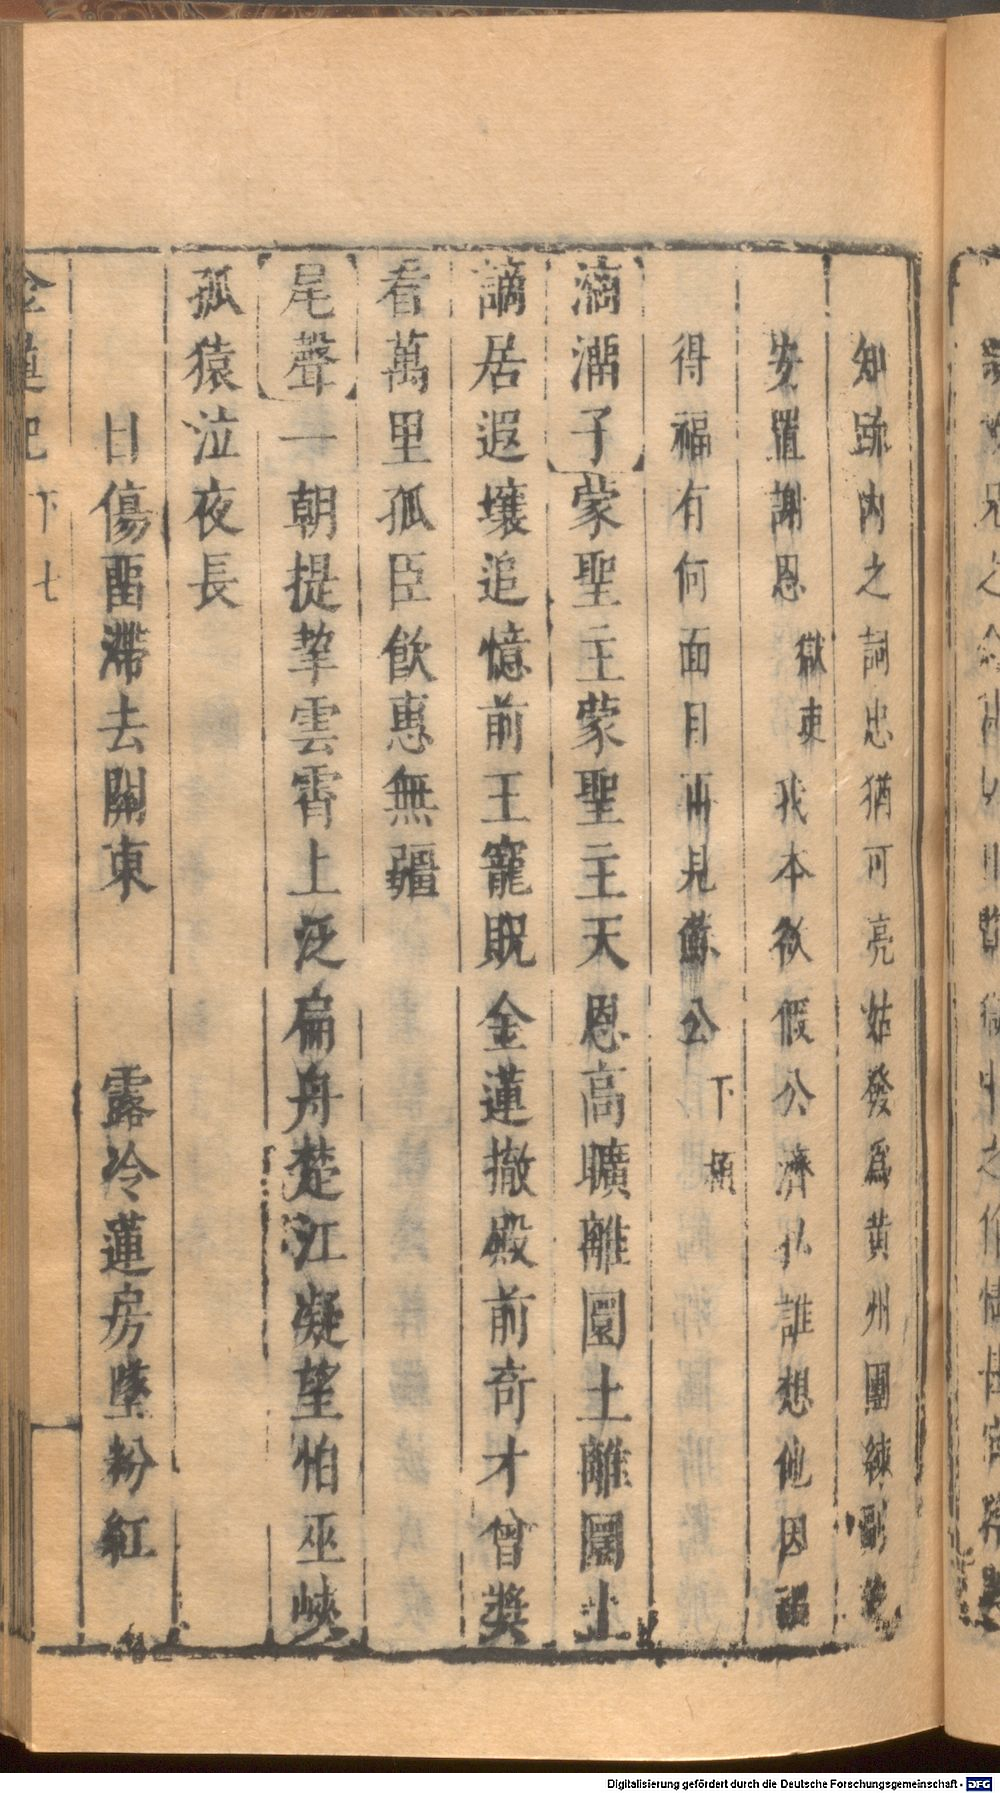 知䟽内之詞忠猶可亮姑發爲黃州團練副使
安置謝恩獄吏我本欲假公濟私誰想他因禍
得福有何面目再見蘇公下桶
滴溜子蒙聖主蒙聖主天恩高曠離圜土離圜土
謫居遐壤追憶前王寵貺金蓮撤殿前奇才曾奬
看萬里孤臣飲惠無疆
尾聲一朝提挈雲霄上泛扁舟楚江凝望怕巫峽
孤猿泣夜長
目傷留滯去關東 露冷蓮房墜粉紅
金蓮記 下 七
Digitalisierung gefördert durch die Deutsche Forschungsgemeinschaft - DFG